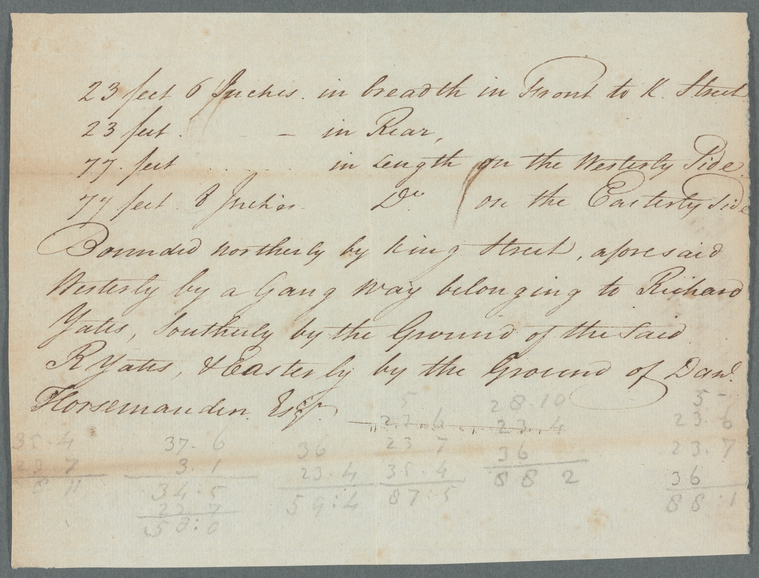 23 feet 6 Inches. in breadth in Front to K. Street
23 feet. – in Rear,
77. feet in Length on the Westerly Side
77 feet 8 Inches. Do. on the Easterly Side
Bounded Northerly by King Street, aforesaid
Westerly by a Gang Way belonging to Richard
Yates, Southerly by the Ground of the Said
R Yates, & Easterly by the Ground of Danl.
Horsemanden Esqr.
5 28.10 5 -
23.6 23.4 23.6
35.4 37.6 36 23 7 36 23.7
23 7 3.1 23.4 35.4 8 8 2 36
8 11 34.5 59:4 87:5 88:1
23 7
58:0